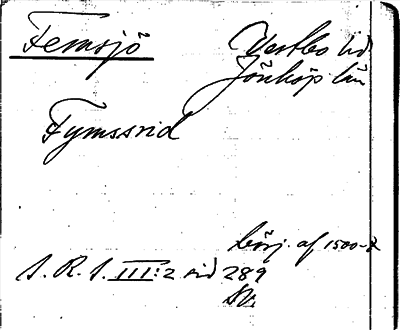 Femsjö
Vestbo hd.
Jönköp. län
Fymssrid
börj. af 1500-t
S. R. S. III:2 sid 289